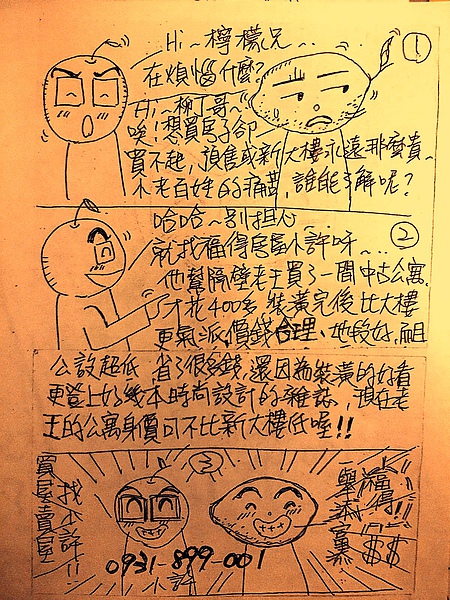 Hi~檸檬兄~..
在煩惱什麼?
①
Hi~柳丁哥~
唉!想買房子卻
買不起,預售或新大樓永遠那麼貴~
小老百姓的痛苦,誰能了解呢?
哈哈~別担心
②
就找福得房屋小許呀~...
他幫隔壁老王買了一間中古公寓
才花400多 裝潢完後比大樓
更氣派,價錢合理、地段好,而且
公設超低 省了很多錢,還因為裝潢的好看
更登上好幾本時尚設計的雜誌,現在老
王的公寓身價可不比新大樓低喔!!
③
買屋賣屋
找小許!!
福得!!
一舉添富
$$
0931-899-001
小許